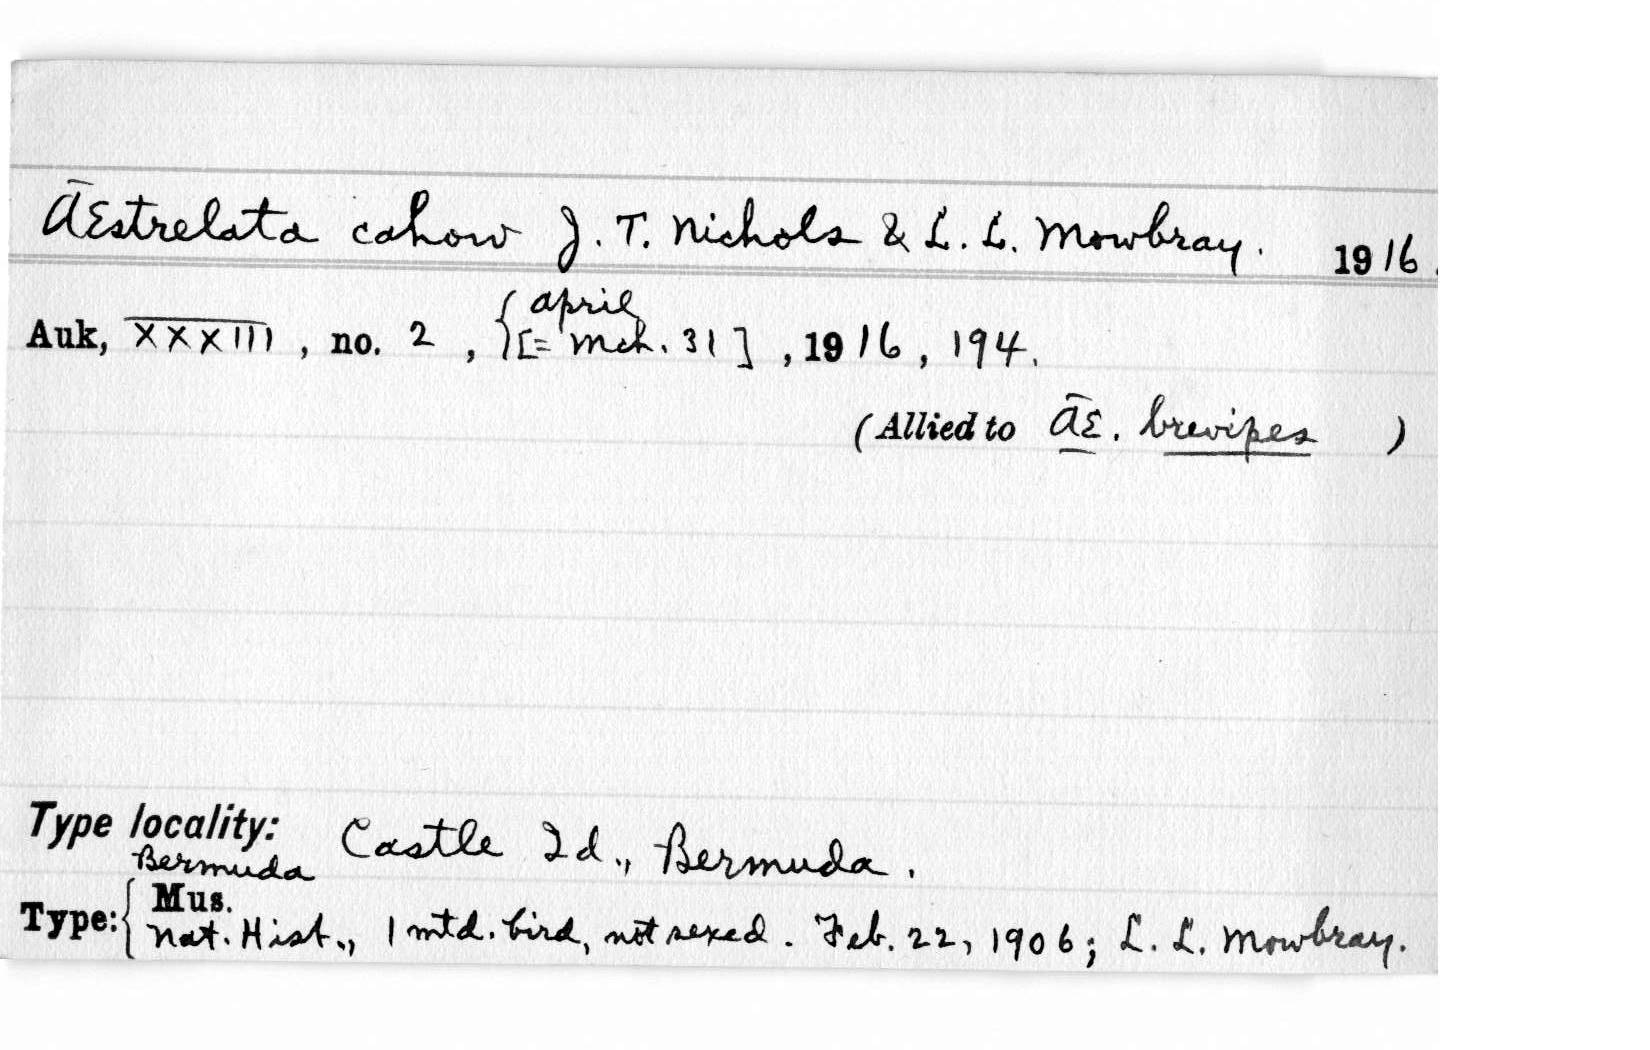 Æstrelata cahow J. T. Nichols & L. L. Mowbray. 1916.
Auk, XXXIII, no. 2, { April [= Mch. 31], 1916, 194.
(Allied to Æ. brevipes )
Type locality: Castle Id., Bermuda.
Bermuda
Type: { Mus.
Nat. Hist., 1 mtd. bird, not sexed. Feb. 22, 1906; L. L. Mowbray.